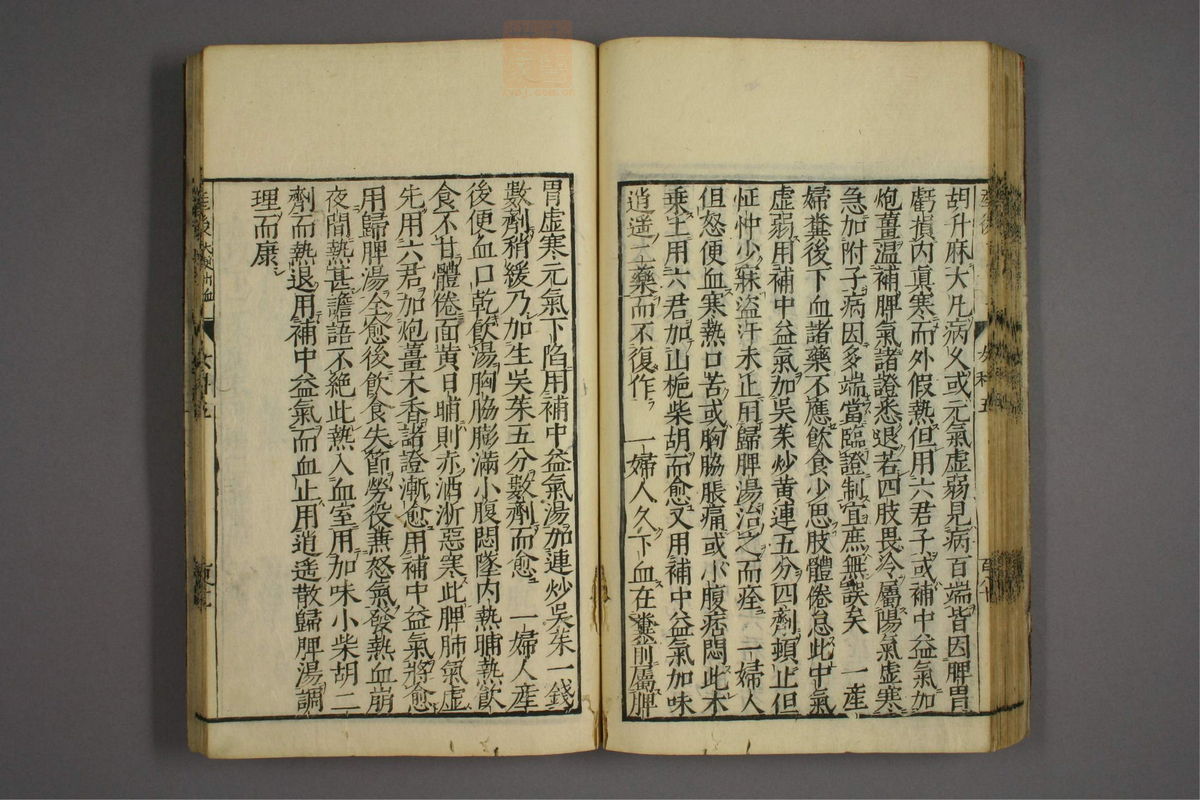 胡升麻大凡病久或元氣虛弱見病百端皆因脾胃
虧損內眞寒而外假熱但用六君子或補中益氣加
炮薑溫補脾氣諸證悉退若四肢畏冷屬陽氣虛寒
急加附子病因多端當臨證制宜庶無誤矣　一產
婦糞後下血諸藥不應飲食少思肢體倦怠此中氣
虛弱用補中益氣加吳茱炒黃連五分四劑頓止但
怔忡少寐盜汗未止用歸脾湯治之而痊　一婦人
但怒便血寒熱口苦或胸脇脹痛或小腹痞悶此木
乘土用六君加山梔柴胡而愈又用補中益氣加味
逍遙二藥而不復作　一婦人久下血在糞前屬脾
胃虛寒元氣下陷用補中益氣湯加連炒吳茱一錢
數劑稍緩乃加生吳茱五分數劑而愈　一婦人産
後便血口乾飲湯胸脇膨滿小腹悶墜內熱晡熱飲
食不甘體倦面黃日晡則赤洒淅惡寒此脾肺氣虛
先用六君加炮薑木香諸證漸愈用補中益氣將愈
用歸脾湯全愈後飲食失節勞役兼怒氣發熱血崩
夜間熱甚譫語不絕此熱入血室用加味小柴胡二
劑而熱退用補中益氣而血止用逍遙散歸脾湯調
理而康